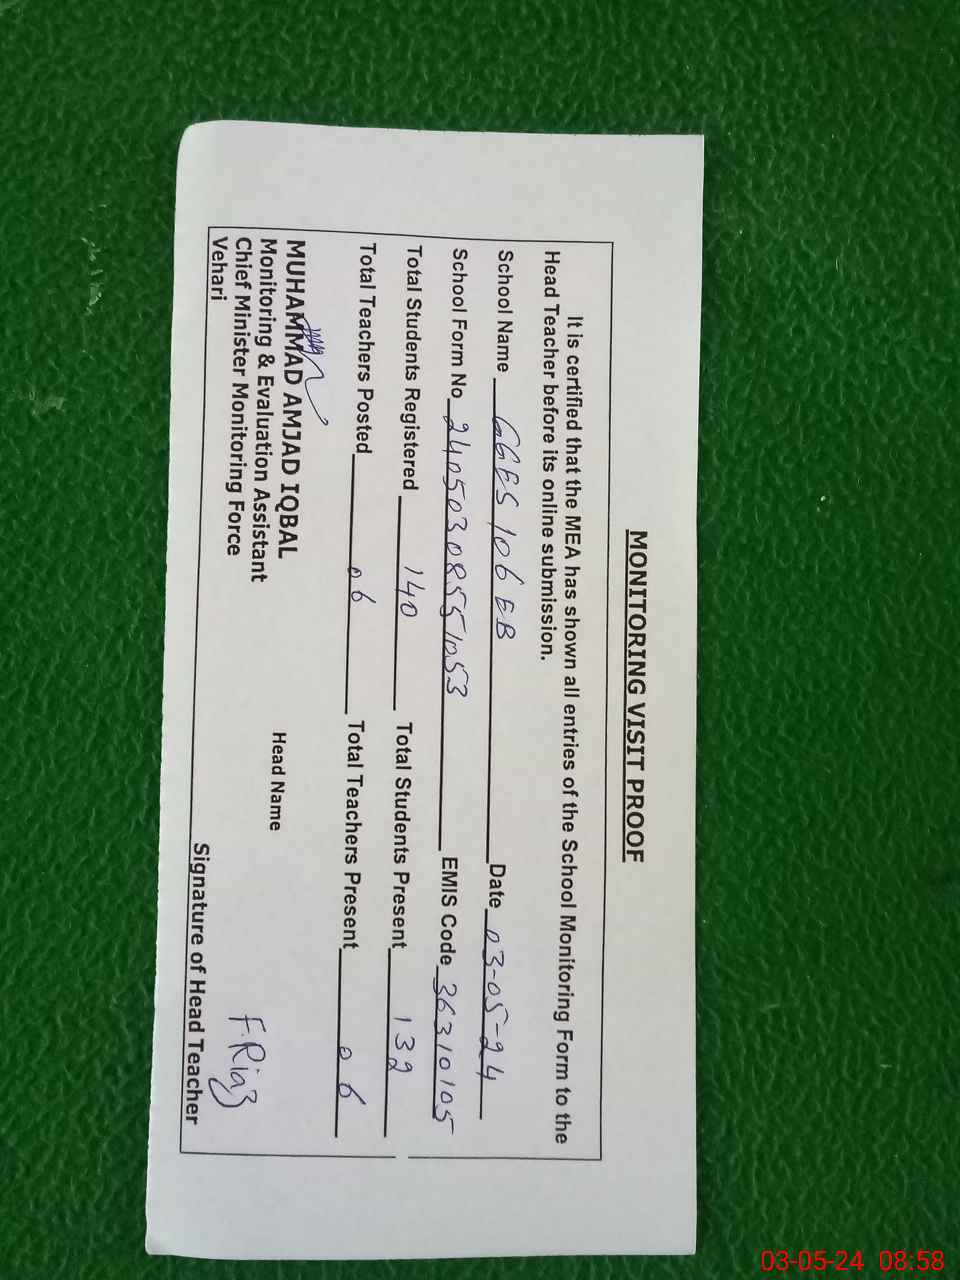 MONITORING VISIT PROOF
It is certified that the MEA has shown all entries of the School Monitoring Form to the
Head Teacher before its online submission.
School Name GGES 106 EB Date 03-05-24
School Form No 24050308551053 EMIS Code 36310105
Total Students Registered 140 Total Students Present 132
Total Teachers Posted 06 Total Teachers Present 06
MUHAMMAD AMJAD IQBAL
Monitoring & Evaluation Assistant
Chief Minister Monitoring Force
Vehari
Head Name
F.Riaz
Signature of Head Teacher
03-05-24 08:58